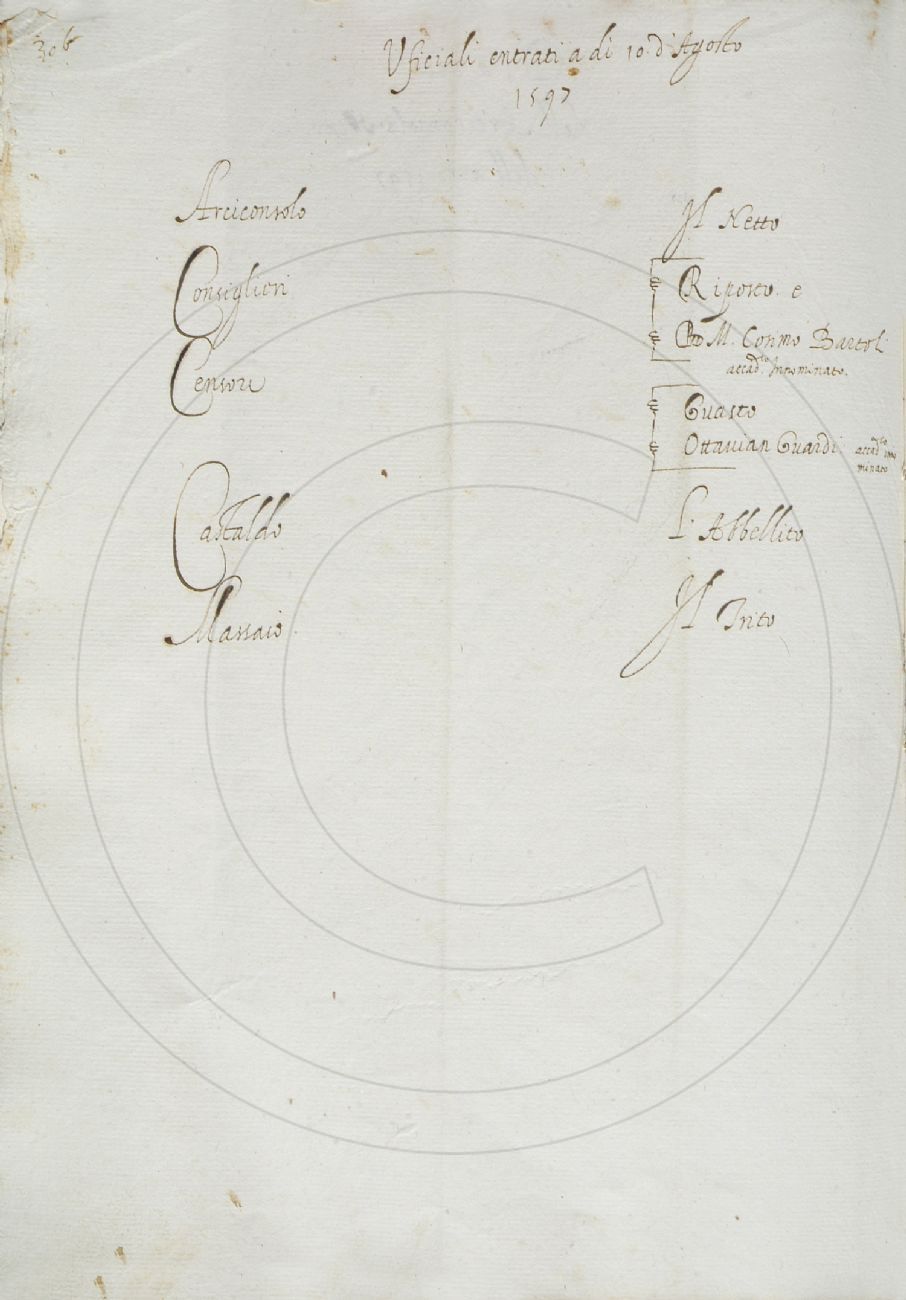 306
Uficiali entrati a di 10. d'Agosto
1597
Arciconsolo Il Netto
Consiglieri Riposto. e
M. Cosimo Bartoli
accad.co Innominato.
Censori Guasto
Ottavian Guardi accad.co Inno
minato
Castaldo L'Abbellito
Massaio. Il Trito